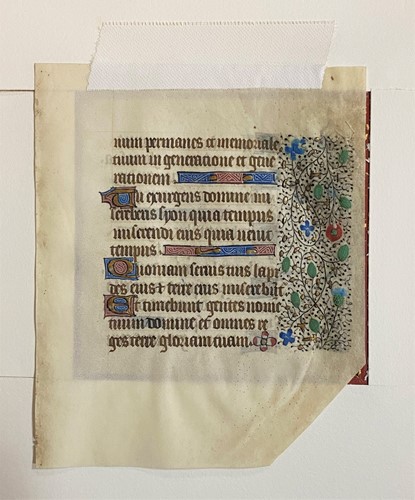 num permanes et memoriale
tuum in generatione et gene
rationem
Tu exurgens domine mi
sereberis syon quia tempus
miserendi eius quia venit
tempus
Quoniam
des eius et terre eius miserebūt
Et timebunt gentes nome
tuum domine et omnes re
ges terre gloriam tuam.